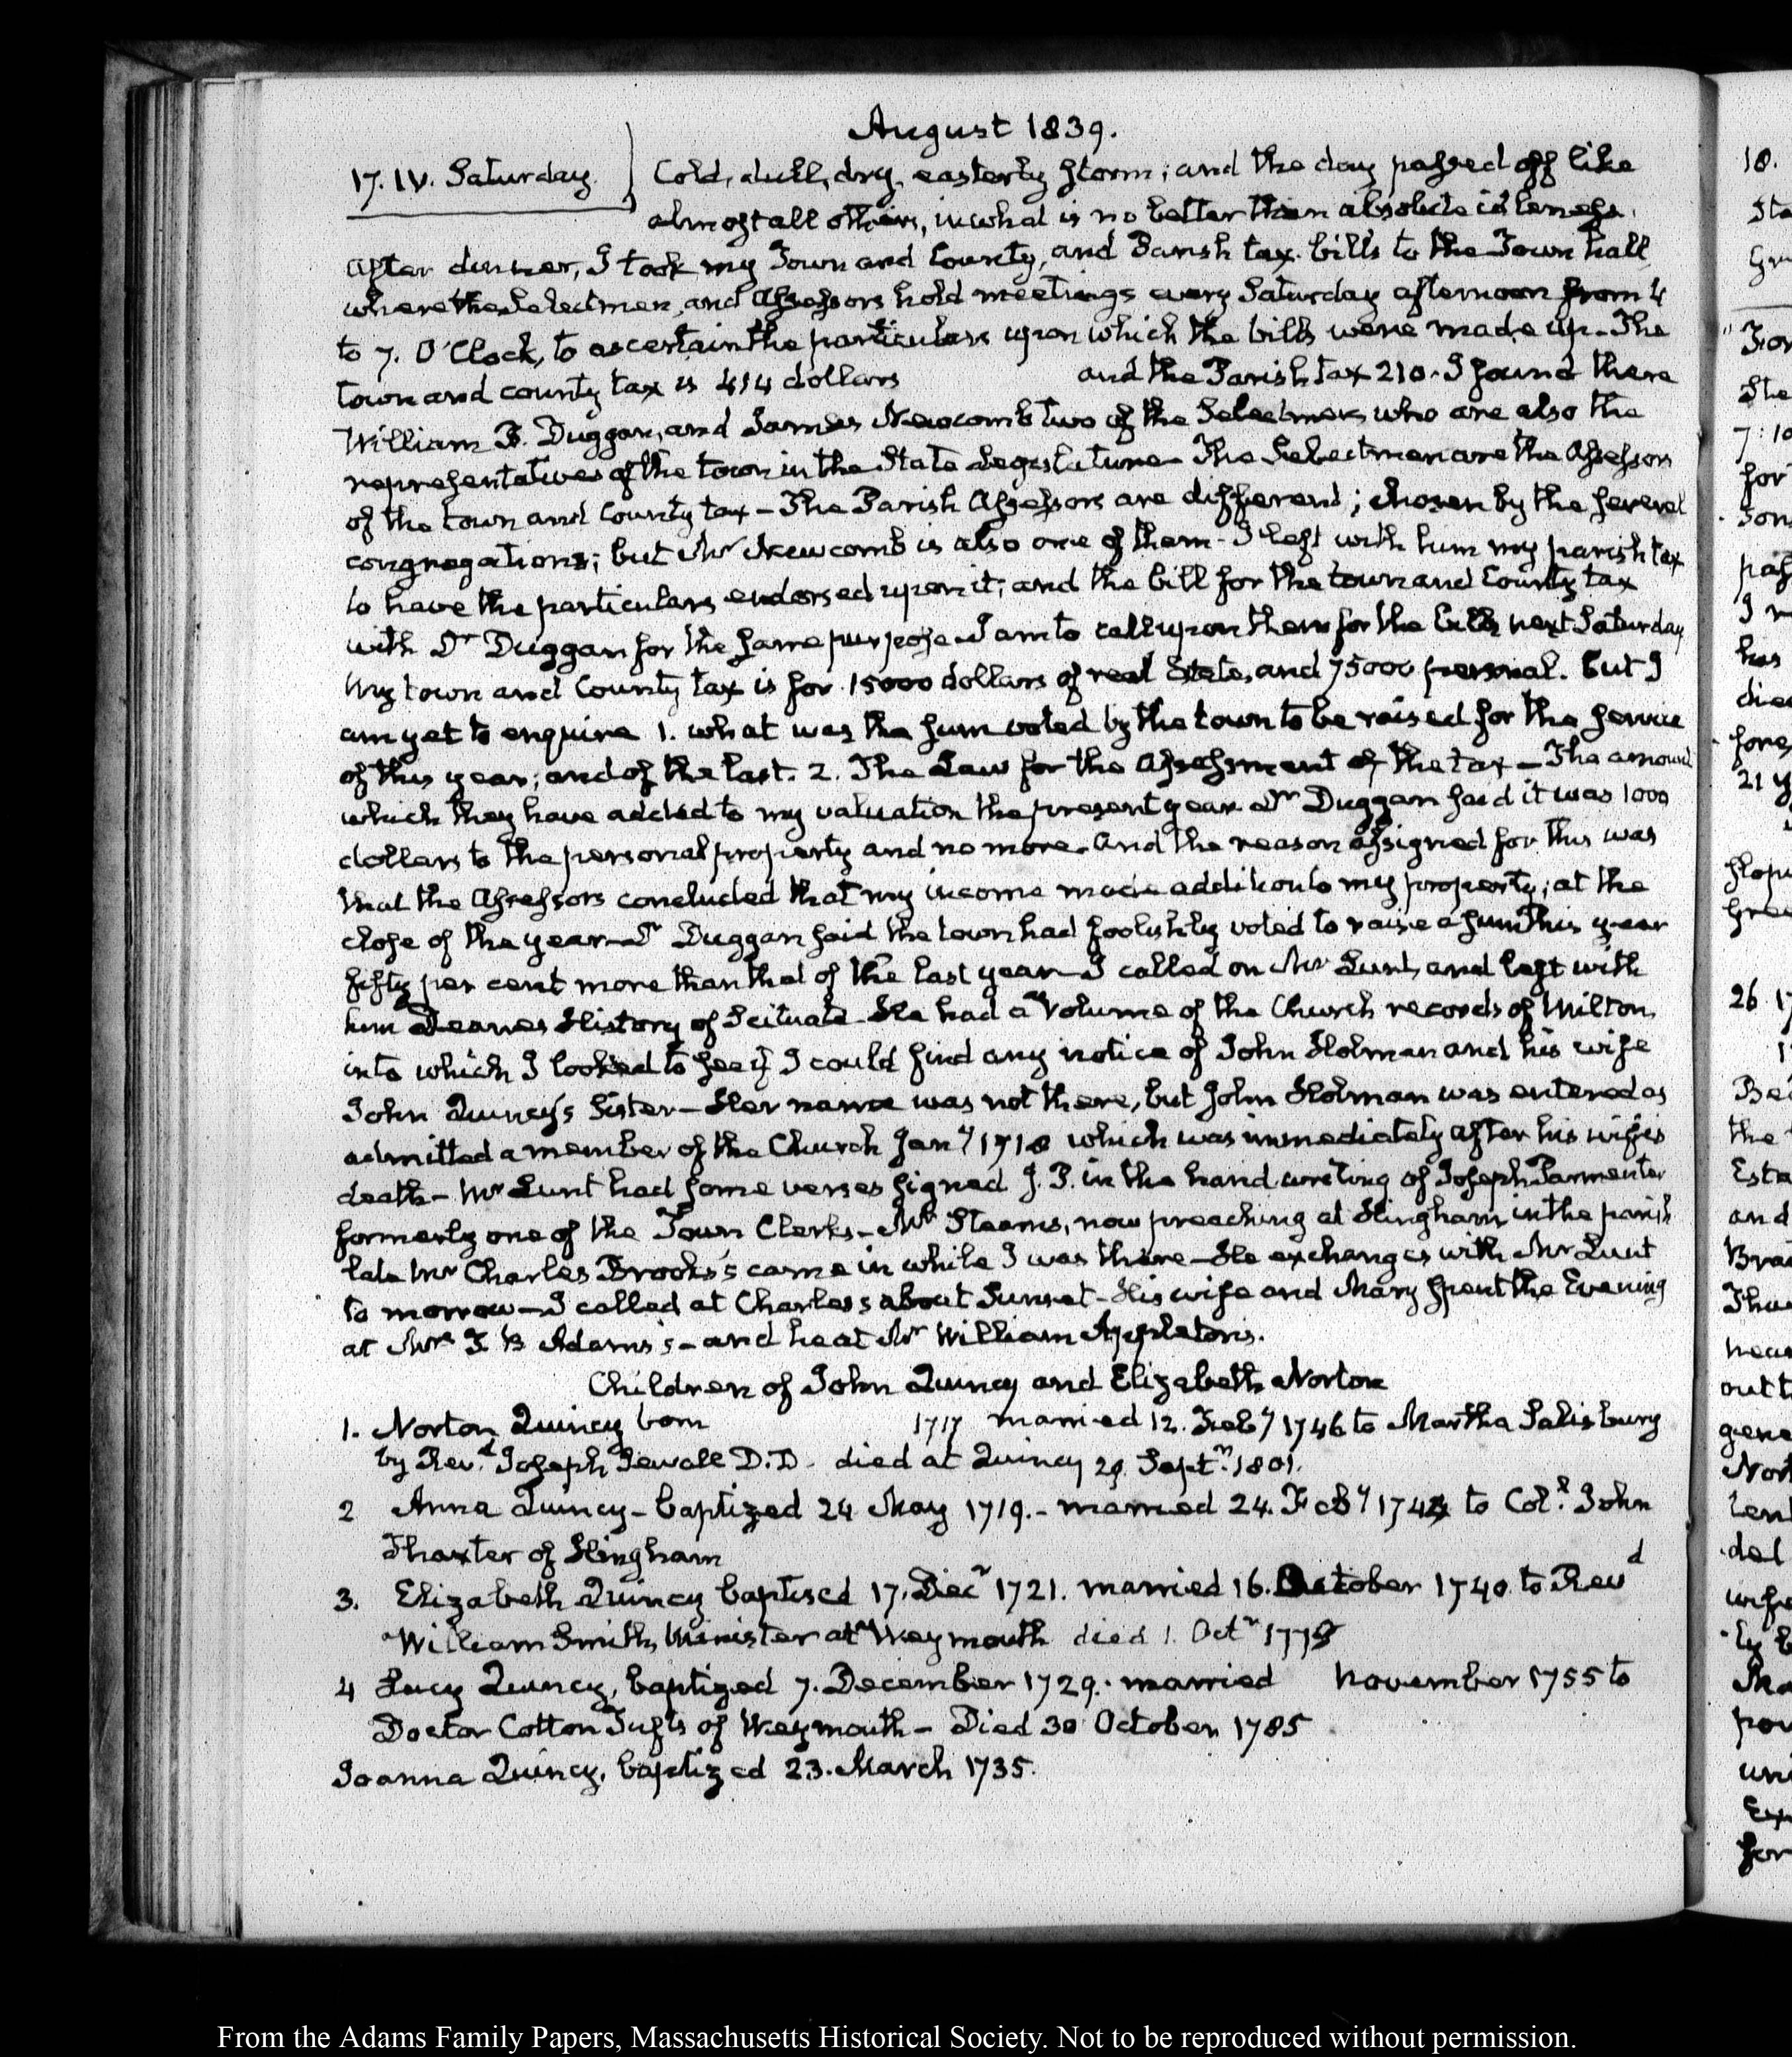 August 1839.
17. IV. Saturday. Cold, dull, dry, easterly storm; and the day passed off like
almost all others, in what is no better than absolute idleness.
After dinner, I took my Town and County, and Parish tax bills to the Town hall
where the Selectmen, and Assessors hold meetings every Saturday afternoon from 4
to 7. O'Clock, to ascertain the particulars upon which the bills were made up. The
town and county tax is 414 dollars and the Parish tax 210. I found there
William B. Duggan, and James Newcomb two of the Selectmen who are also the
representatives of the town in the State Legislature. The Selectmen are the Assessors
of the town and County tax – The Parish Assessors are different; chosen by the several
congregations; but Mr Newcomb is also one of them – I left with him my parish tax
to have the particulars endorsed upon it; and the bill for the town and County tax
with Dr Duggan for the same purpose – I am to call upon them for the bills next Saturday
My town and County tax is for 15000 dollars of real Estate, and 75000 personal. But I
am yet to enquire 1. what was the sum voted by the town to be raised for the service
of this year; and of the last. 2. The Law for the Assessment of the tax – The amount
which they have added to my valuation the present year Dr Duggan said it was 1000
dollars to the personal property and no more. And the reason assigned for this was
that the Assessors concluded that my income made addition to my property; at the
close of the year – Dr Duggan said the town had foolishly voted to raise a sum this year
fifty per cent more than that of the last year – I called on Mr Lunt, and left with
him Deanes History of Scituate. He had a volume of the Church records of Milton,
into which I looked to see if I could find any notice of John Holman and his wife
John Quincy's Sister – Her name was not there, but John Holman was entered as
admitted a member of the Church Jany 1718 which was immediately after his wife's
death – Mr Lunt had some verses signed J. P. in the hand writing of Joseph Parmenter
formerly one of the Town Clerks – Mr Stearns, now preaching at Hingham in the parish
late Mr Charles Brooks's came in while I was there – He exchanges with Mr Lunt
to morrow – I called at Charles's about Sunset – His wife and Mary spent the Evening
at Mrs T B Adams's – and he at Mr William Appleton's.
Children of John Quincy and Elizabeth Norton
1. Norton Quincy born 1717 married 12. Feby 1746 to Martha Salisbury
by Revd Joseph Sewall D.D. died at Quincy 29. Septr 1801.
2 Anna Quincy – baptized 24 May 1719. – married 24. Feby 1742 to Coll John
Thaxter of Hingham
3. Elizabeth Quincy baptised 17. Decr 1721. married 16. October 1740. to Revd
William Smith, Minister at Weymouth died 1. Octr 1775
4 Lucy Quincy, baptized 7. December 1729. married November 1755 to
Doctor Cotton Tufts of Weymouth – Died 30 October 1785
Joanna Quincy, baptized 23. March 1735.
From the Adams Family Papers, Massachusetts Historical Society. Not to be reproduced without permission.